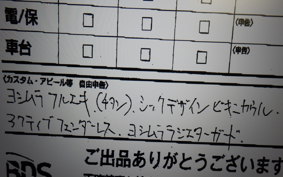 電/保 □ □ □ (申告)
車台 □ □ □ (申告)
(カスタム・アピール等 自由申告)
ヨシムラ フルエキ (チタン). シックデザイン ビキニカウル.
アクティブ フェンダーレス. ヨシムラ ラジエターガード.
ご出品ありがとうございます
BDS